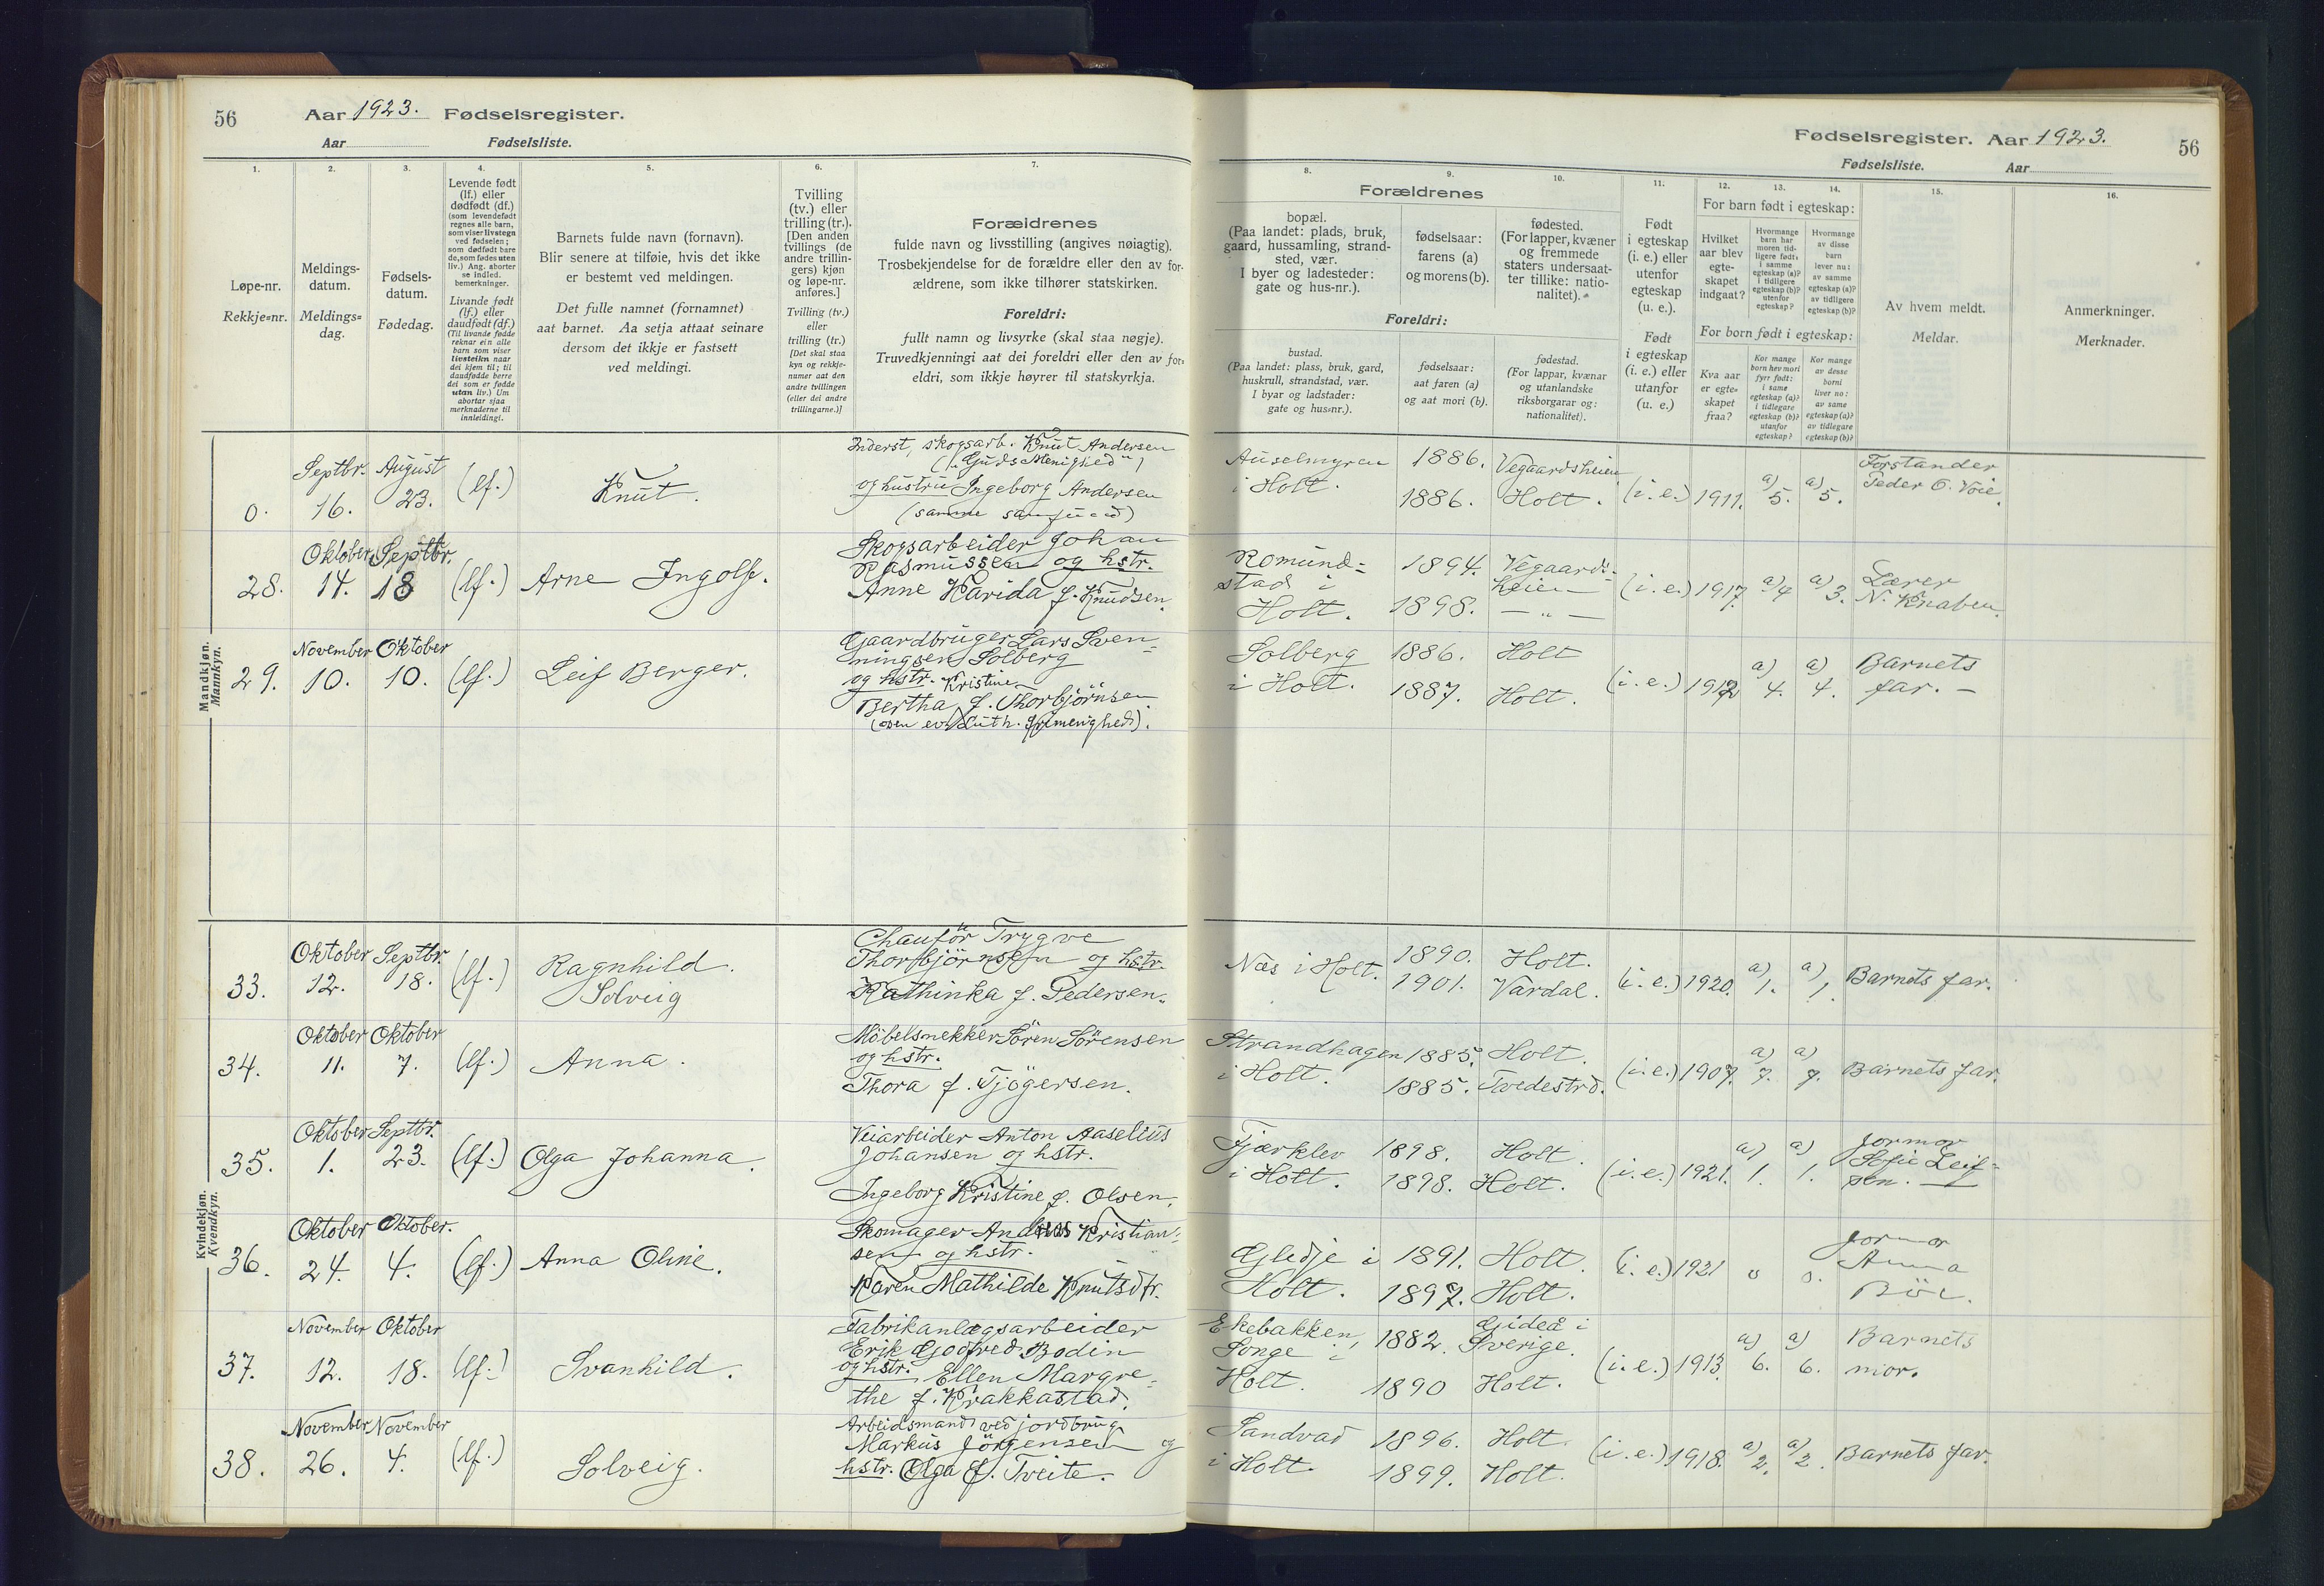 56 Aar 1923. Fødselsregister.
Aar Fødselsliste.
1. 2. 3. 4. 5. 6. 7.
Løpe-nr.
Rekkje=nr.
Meldings-
datum.
Meldings=
dag.
Fødsels-
datum.
Fødedag.
Levende født
(lf.) eller
dødfødt (df.)
(som levendefødt
regnes alle barn,
som viser livstegn
ved fødselen;
som dødfødt bare
de, som fødes uten
liv.) Ang. aborter
se indled.
bemerkninger.
Livande født
(lf.) eller
daudfødt (df.)
(Til livande fødde
reknar ein alle
barn som viser
livsteikn naar
dei kjem til; til
daudfødde berre
dei som er fødde
utan liv.) Um
abortar sjaa
merknaderne til
innleidingi.
Barnets fulde navn (fornavn).
Blir senere at tilføie, hvis det ikke
er bestemt ved meldingen.
Det fulle namnet (fornamnet)
aat barnet. Aa setja attaat seinare
dersom det ikkje er fastsett
ved meldingi.
Tvilling
(tv.) eller
trilling (tr.).
[Den anden
tvillings (de
andre trillin-
gers) kjøn
og løpe-nr.
anføres.]
Tvilling (tv.)
eller
trilling (tr.)
[Det skal staa
kyn og rekkje-
numer aat den
andre tvillingen
(eller dei andre
trillingarne.)]
Forældrenes
fulde navn og livsstilling (angives nøiagtig).
Trosbekjendelse for de forældre eller den av for-
ældrene, som ikke tilhører statskirken.
Foreldri:
fullt namn og livsyrke (skal staa nøgje).
Truvedkjenningi aat dei foreldri eller den av for=
eldri, som ikkje høyrer til statskyrkja.
Mandkjøn.
Mannkyn.
0. Septbr. 16. August 23. (lf.) Knut.
Inderst, skogsarb. Knut Andersen
("Guds Menighed")
og hustru Ingeborg Andersen
(samme samfund)
28. Oktober 14. Septbr. 18 (lf.) Arne Ingolf.
Skogsarbeider Johan
Rasmussen og hstr.
Anne Harida f. Knudsen.
29. November 10. Oktober 10. (lf.) Leif Berger.
Gaardbruger Lars Sven-
ningsen Solberg
og hstr. Kristine
Bertha f. Thorbjørnsen.
(den ev. Luth. frimenighed).
Kvindekjøn.
Kvendkyn.
33. Oktober 12. Septbr. 18. (lf.) Ragnhild.
Solveig
Chauför Trygve
Thorbjörnsen og hstr.
Kathinka f. Pedersen.
34. Oktober 11. Oktober 7. (lf.) Anna.
Möbelsnekker Sören Sörensen
og hstr.
Thora f. Tjögersen.
35. Oktober 1. Septbr. 23. (lf.) Olga Johanna.
Veiarbeider Anton Aaselius
Johansen og hstr.
Ingeborg Kristine f. Olsen.
36. Oktober 24. Oktober. 4. (lf.) Anna Oline.
Skomager Andreas Kristian-
sen og hstr.
Karen Mathilde Knutsdtr.
37. November 12. Oktober 18. (lf.) Svanhild.
Fabrikanlægsarbeider
Erik Godfred Bodin
og hstr. Ellen Margre-
the f. Krakkastad.
38. November 26. November 4. (lf.) Solveig.
Arbeidsmand ved jordbrug
Markus Jörgensen og
hstr. Olga f. Tveite.
Fødselsregister. Aar 1923. 56
Fødselsliste. Aar
8. 9. 10. 11. 12. 13. 14. 15. 16.
Forældrenes
bopæl.
(Paa landet: plads, bruk,
gaard, hussamling, strand-
sted, vær.
I byer og ladesteder:
gate og hus-nr.).
fødselsaar:
farens (a)
og morens (b).
fødested.
(For lapper, kvæner
og fremmede
staters undersaat-
ter tillike: natio-
nalitet).
Foreldri:
bustad.
(Paa landet: plass, bruk, gard,
huskrull, strandstad, vær.
I byar og ladstader:
gate og hus=nr.).
fødselsaar:
aat faren (a)
og aat mori (b).
fødestad.
(For lappar, kvænar
og utanlandske
riksborgarar og:
nationalitet).
Født
i egteskap
(i. e.) eller
utenfor
egteskap
(u. e.).
Født
i egteskap
(i. e.) eller
utanfor
(u. e.)
For barn født i egteskap:
Hvilket
aar blev
egte-
skapet
indgaat?
Hvormange
barn har
moren tid-
ligere født:
i samme
egteskap (a)?
i tidligere
egteskap (b)?
utenfor
egteskap?
Hvormange
av disse
barn
lever nu:
av samme
egteskap (a)?
av tidligere
egteskap (b)?
For born født i egteskap:
Kva aar
er egte-
skapet
fraa?
Kor mange
born hev mori
fyrr født:
i same
egteskap (a)?
i tidlegare
egteskap (b)?
utanfor
egteskap?
Kor mange
av desse
borni
liver no:
av same
egteskap (a)?
av tidlegare
egteskap (b)?
Av hvem meldt.
Meldar.
Anmerkninger.
Merknader.
Auselmyren 1886. Vegaardsheien
i Holt. 1886. Holt. (i. e.) 1911. a) 5. a) 5. Forstander
Peder O. Voie
Romund= 1894. Vegaards-
stad i heien (i. e.) 1917. a) 4 a) 3. Lærer
Holt. 1898. — " — N. Knaben.
Solberg 1886. Holt
i Holt. 1887. Holt. (i. e.) 1912 a) 4. a) 4. Barnets
far. —
Næs i Holt. 1890. Holt.
1901. Vardal. (i. e.) 1920. a) 1. a) 1. Barnets far.
Strandhagen 1885. Holt.
i Holt. 1885. Tvedestrd. (i. e.) 1907. a) 7. a) 7. Barnets far.
Fjærklev 1898. Holt.
i Holt. 1898. Holt. (i. e.) 1921. a) 1. a) 1. Jormor
Sofie Leif-
sen.
Gledje i 1891. Holt.
Holt. 1897. Holt. (i. e.) 1921 0 0. Jormor
Anna
Böe.
Ekebakken, 1882. Gideå i
Songe i Sverige.
Holt. 1890 Holt. (i. e.) 1913. a) 6. a) 6. Barnets
mor.
Sandvad 1896. Holt.
i Holt. 1899. Holt. (i. e.) 1918. a) 2. a) 2. Barnets far.